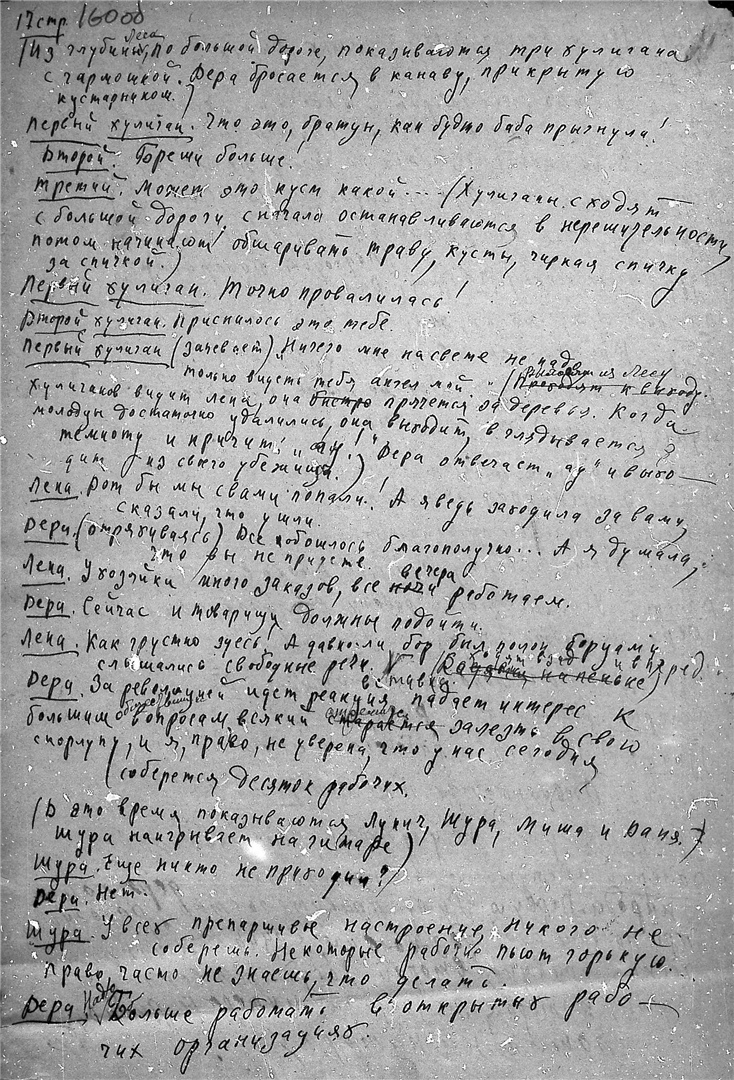 17 стр. 16000
(Из глубины леса, по большой дороге, показываются три хулигана
с гармошкой. Вера бросается в канаву, прикрытую
кустарником.)
Первый хулиган. Что это, братун, как будто баба прыгнула!
Второй. Бреши больше.
Третий. Может это куст какой.... (Хулиганы сходят
с большой дороги, сначала останавливаются в нерешительности,
потом начинают обшаривать траву, кусты, чиркая спичку
за спичкой.)
Первый хулиган. Точно провалилась!
Второй хулиган. Приснилось это тебе.
Первый хулиган (запевает) „Ничего мне на свете не надо
только видеть тебя ангел мой" (Проходят к выходу.
Хулиганов видит Лена, она быстро прячется за деревья. Когда
молодцы достаточно удалились, она выходит, вглядывается в
темноту и кричит „ау!" Вера отвечает „ау" и выхо-
дит из своего убежища.)
Лена. Вот бы мы с вами попали! А я ведь заходила за вами,
сказали, что ушли.
Вера. (отряхиваясь) Все обошлось благополучно... А я думала,
что вы не придете.
Лена. У хозяйки много заказов, все вечера работаем.
Вера. Сейчас и товарищи должны подойти.
Лена. Как грустно здесь. А давно-ли бор был полон борцами,
слышались свободные речи.
Вера. За революцией идет реакция, падает интерес к
большим вопросам всякий старается залезть в свою
скорлупу, и я, право, не уверена, что у нас сегодня
соберется десяток рабочих.
(В это время показываются Лукич, Шура, Миша и Ваня.
Шура наигрывает на гитаре)
Шура. Еще никто не приходил?
Вера. Нет.
Шура. У всех препаршивые настроение, никого не
соберешь. Некоторые рабочие пьют горькую.
Право, часто не знаешь, что делать.
Вера. Надо больше работать в открытых рабо-
чих организациях.